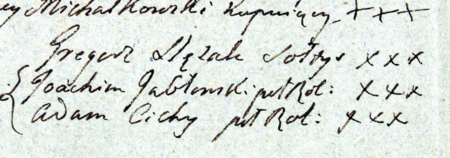 Michałkowski Kupujący + + +
Gregorz Slęzak Sołtys x x x
Joachim Jabłonski półRol: x x x
Adam Cichy półRol: x x x